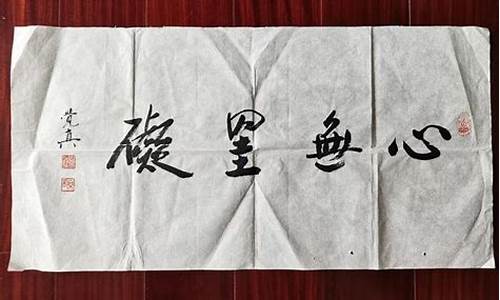 心無罣礙
觉真